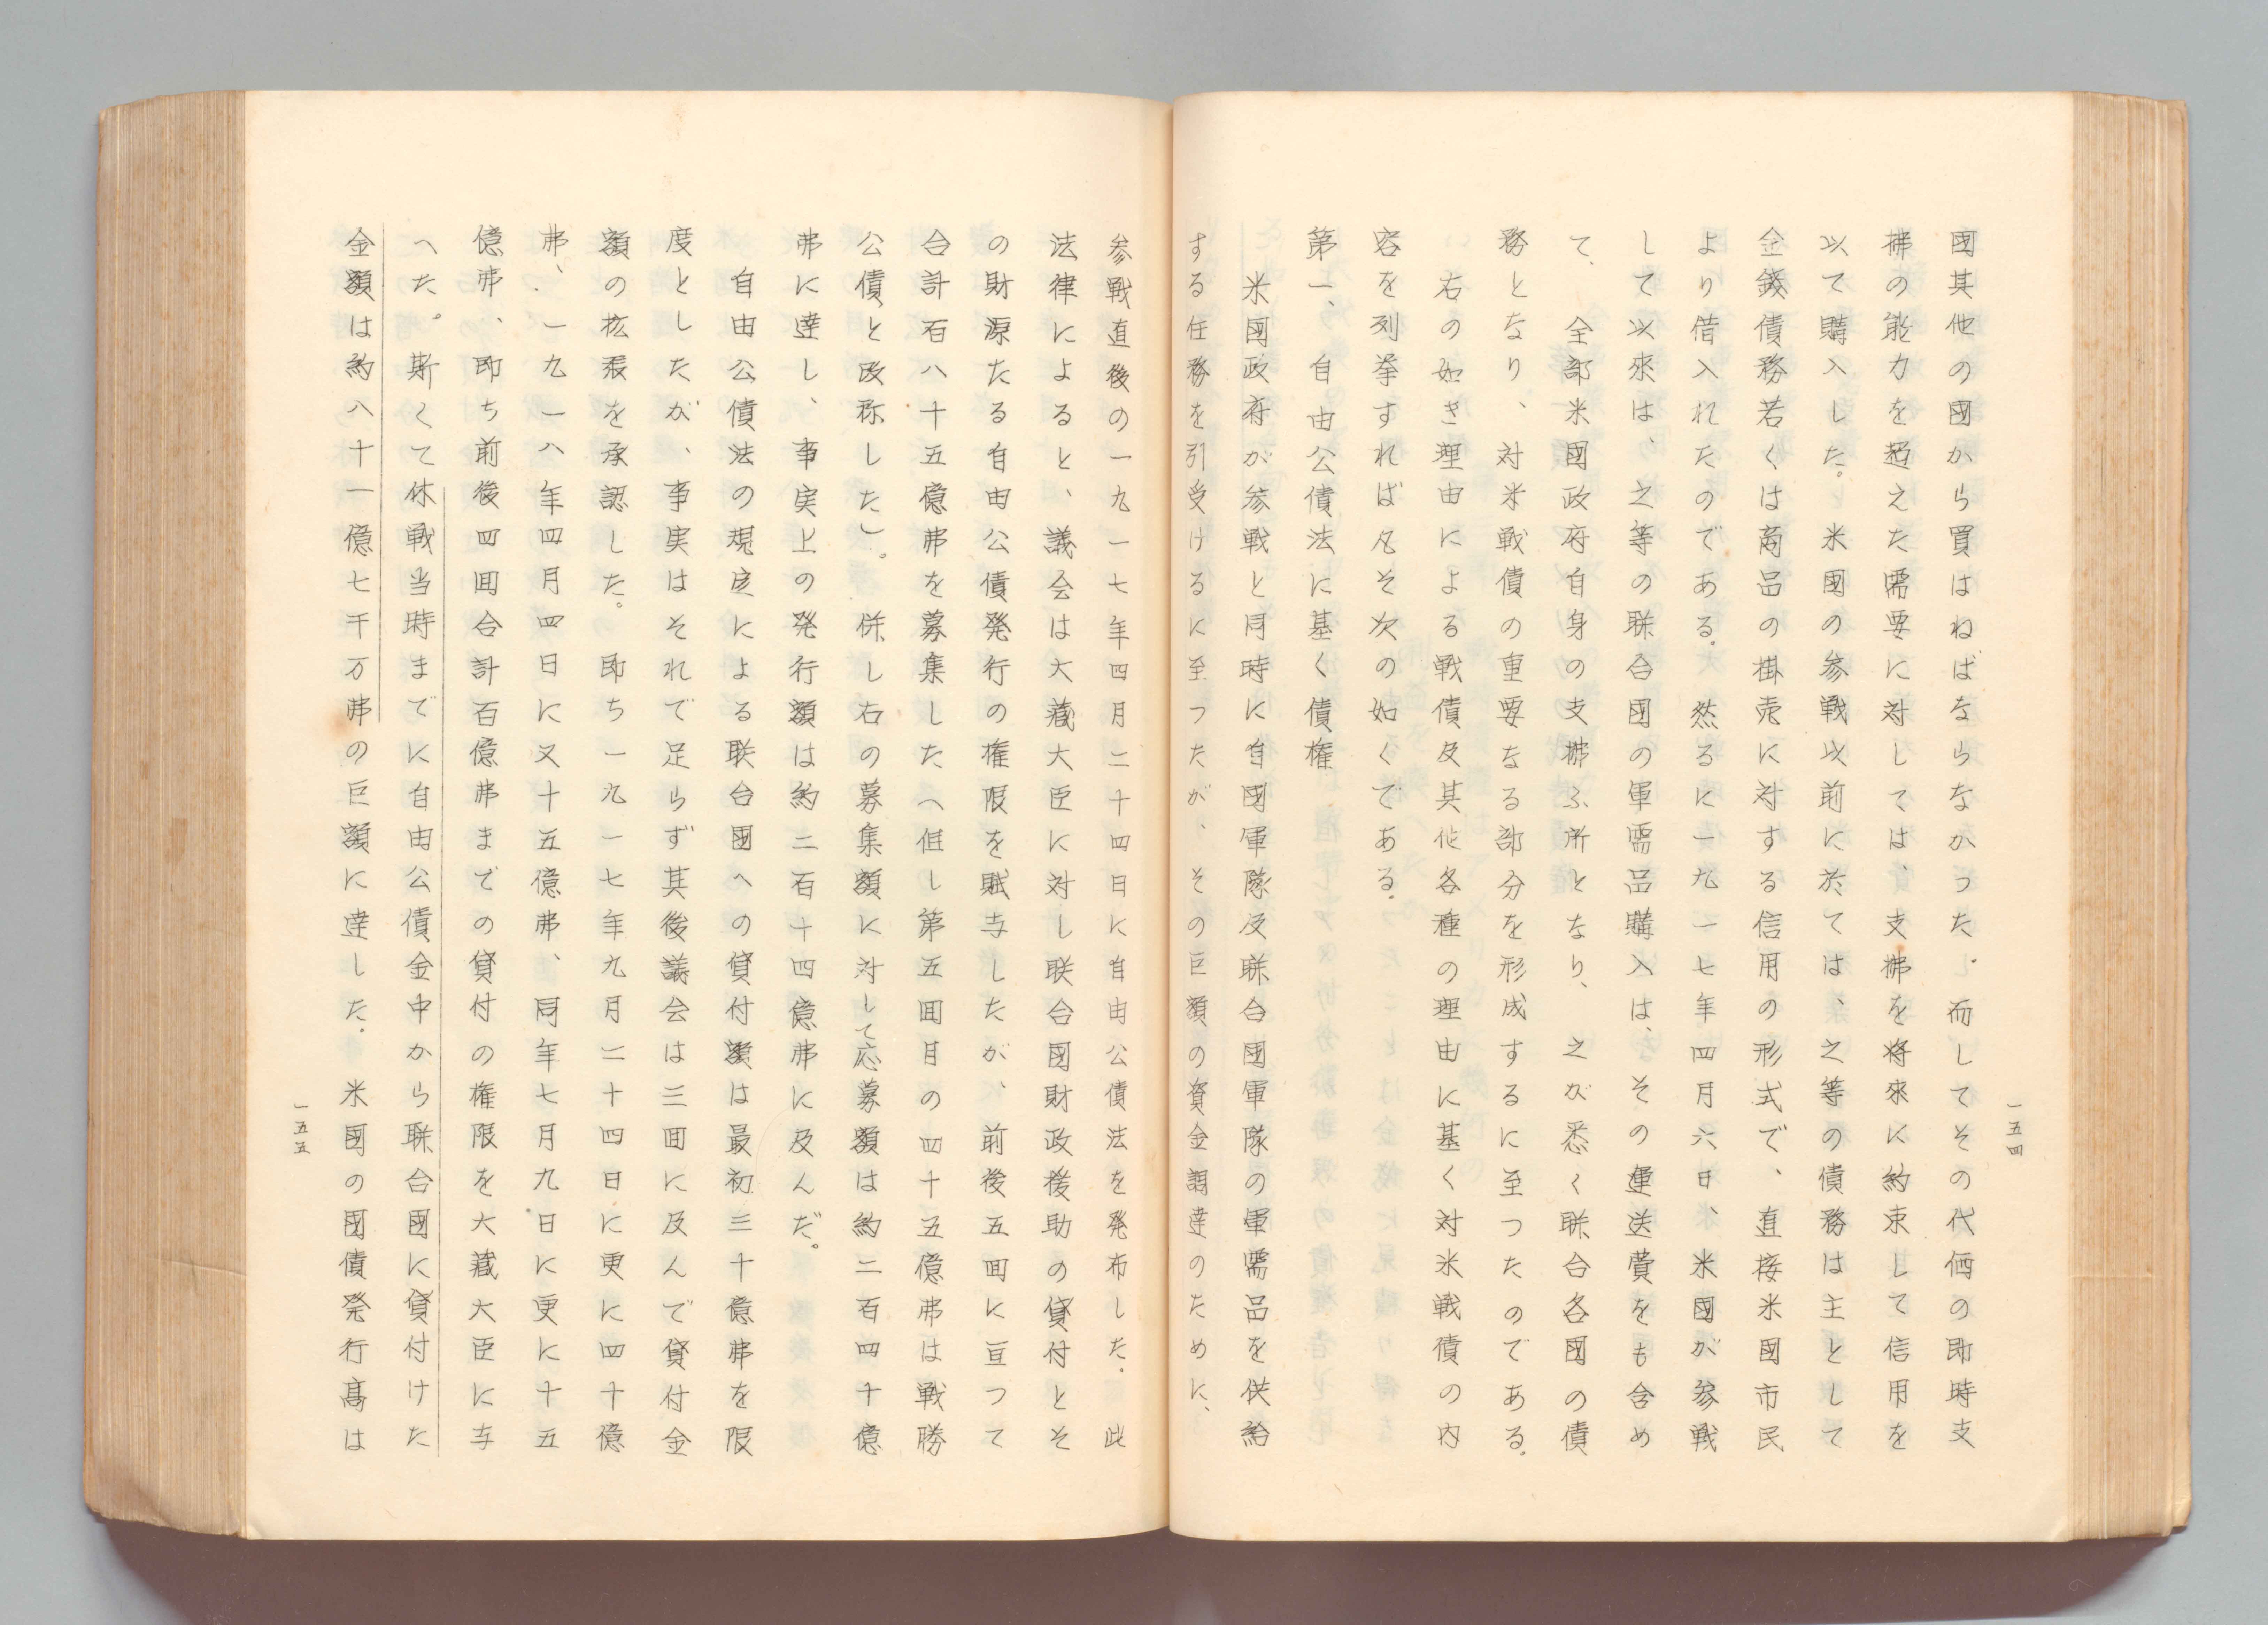 國其他の國から買はねばならなかつた。而してその代価の即時支
拂の能力を超えた需要に対しては、支拂を将來に約束して信用を
以て購入した。米國の参戦以前に於ては、之等の債務は主として
金銭債務若くは商品の掛売に対する信用の形式で、直接米國市民
より借入れたのである。然るに一九一七年四月六日、米國が参戦
して以來は、之等の聯合國の軍需品購入は、その運送費をも含め
て、全部米國政府自身の支拂ふ所となり、之が悉く聯合各國の債
務となり、対米戦債の重要なる部分を形成するに至つたのである。
右の如き理由による戦債及其他各種の理由に基く対米戦債の内
容を列挙すれば凡そ次の如くである。
第一、自由公債法に基く債権
米國政府が参戦と同時に自國軍隊及聯合國軍隊の軍需品を供給
する任務を引受けるに至つたが、その巨額の資金調達のために、
一五四
参戦直後の一九一七年四月二十四日に自由公債法を発布した。此
法律によると、議会は大藏大臣に対し联合國財政援助の貸付とそ
の財源たる自由公債発行の権限を賦与したが、前後五回に亘つて
合計百八十五億弗を募集した(但し第五回目の四十五億弗は戦勝
公債と改称した)。併し右の募集額に対して応募額は約二百四十億
弗に達し、事実上の発行額は約二百十四億弗に及んだ。
自由公債法の規定による联合國への貸付額は最初三十億弗を限
度としたが、事実はそれで足らず其後議会は三回に及んで貸付金
額の拡張を承認した。即ち一九一七年九月二十四日に更に四十億
弗、一九一八年四月四日に又十五億弗、同年七月九日に更に十五
億弗、即ち前後四回合計百億弗までの貸付の権限を大藏大臣に与
へた。斯くて休戦当時までに自由公債金中から聯合國に貸付けた
金額は約八十一億七千万弗の巨額に達した。米國の國債発行高は
一五五